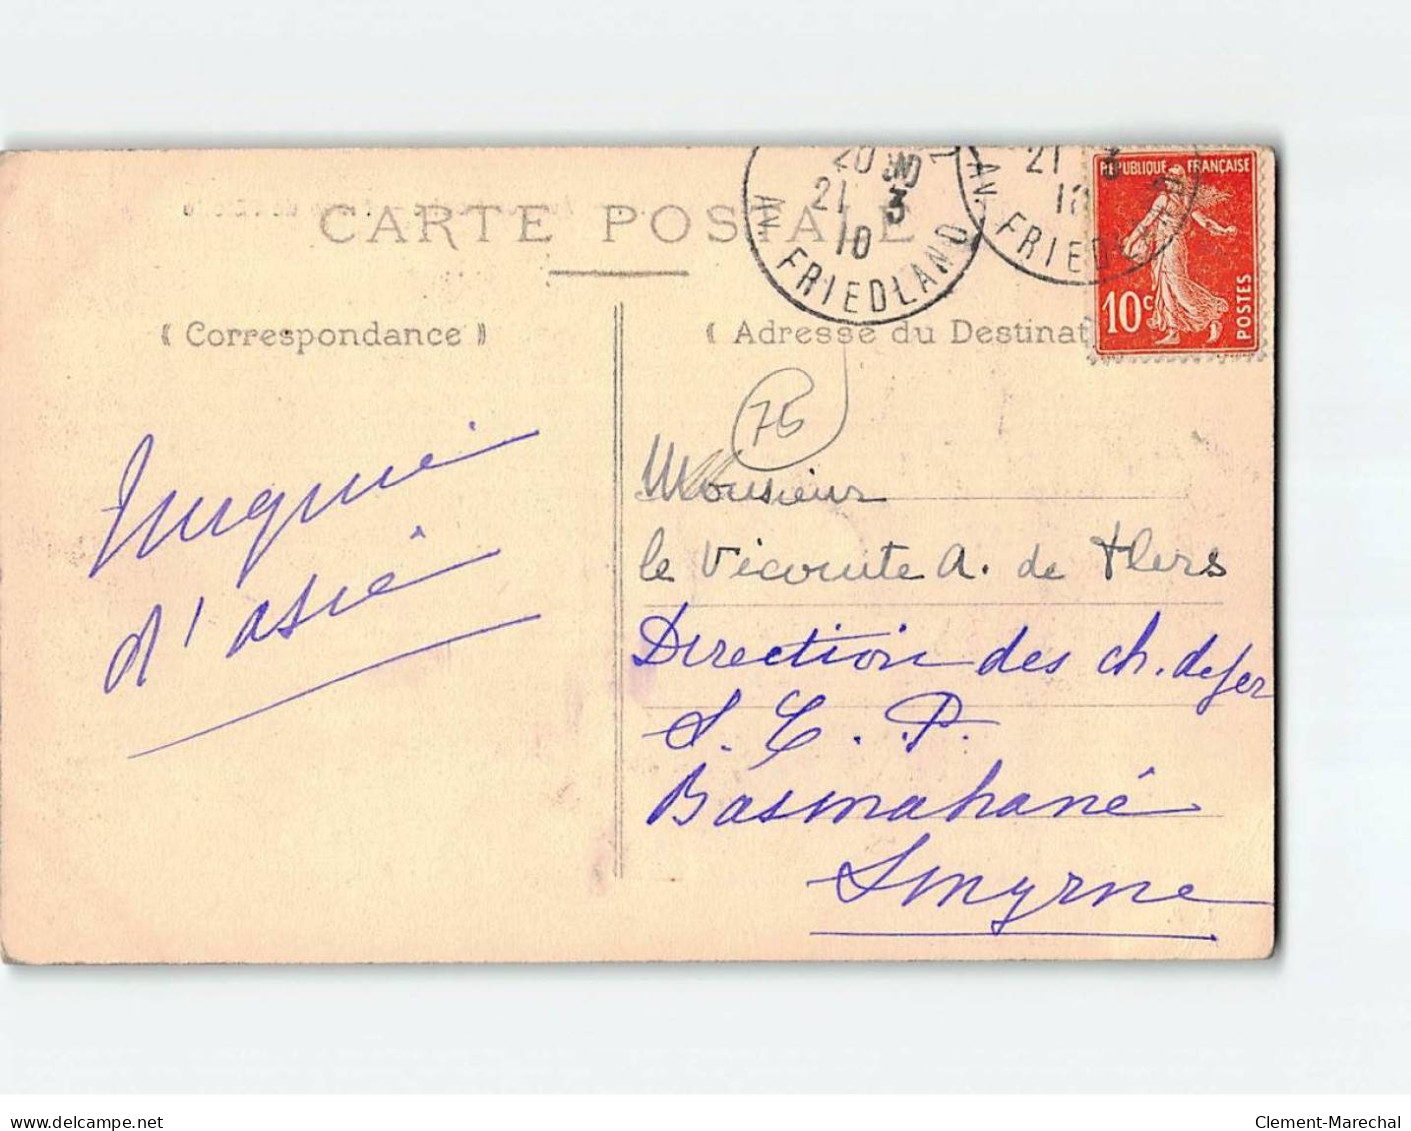 CARTE POSTALE
20 30
21 3
10
AV. FRIEDLAND
21 3
10
AV. FRIEDLAND
RÉPUBLIQUE FRANÇAISE
10c
POSTES
« Correspondance »
« Adresse du Destinat
75
Turquie
d'asie
Monsieur
le Vicomte A. de Flers
Direction des ch. de fer
S. C. P.
Basmahané
Smyrne
delcampe.net
Clement-Marechal